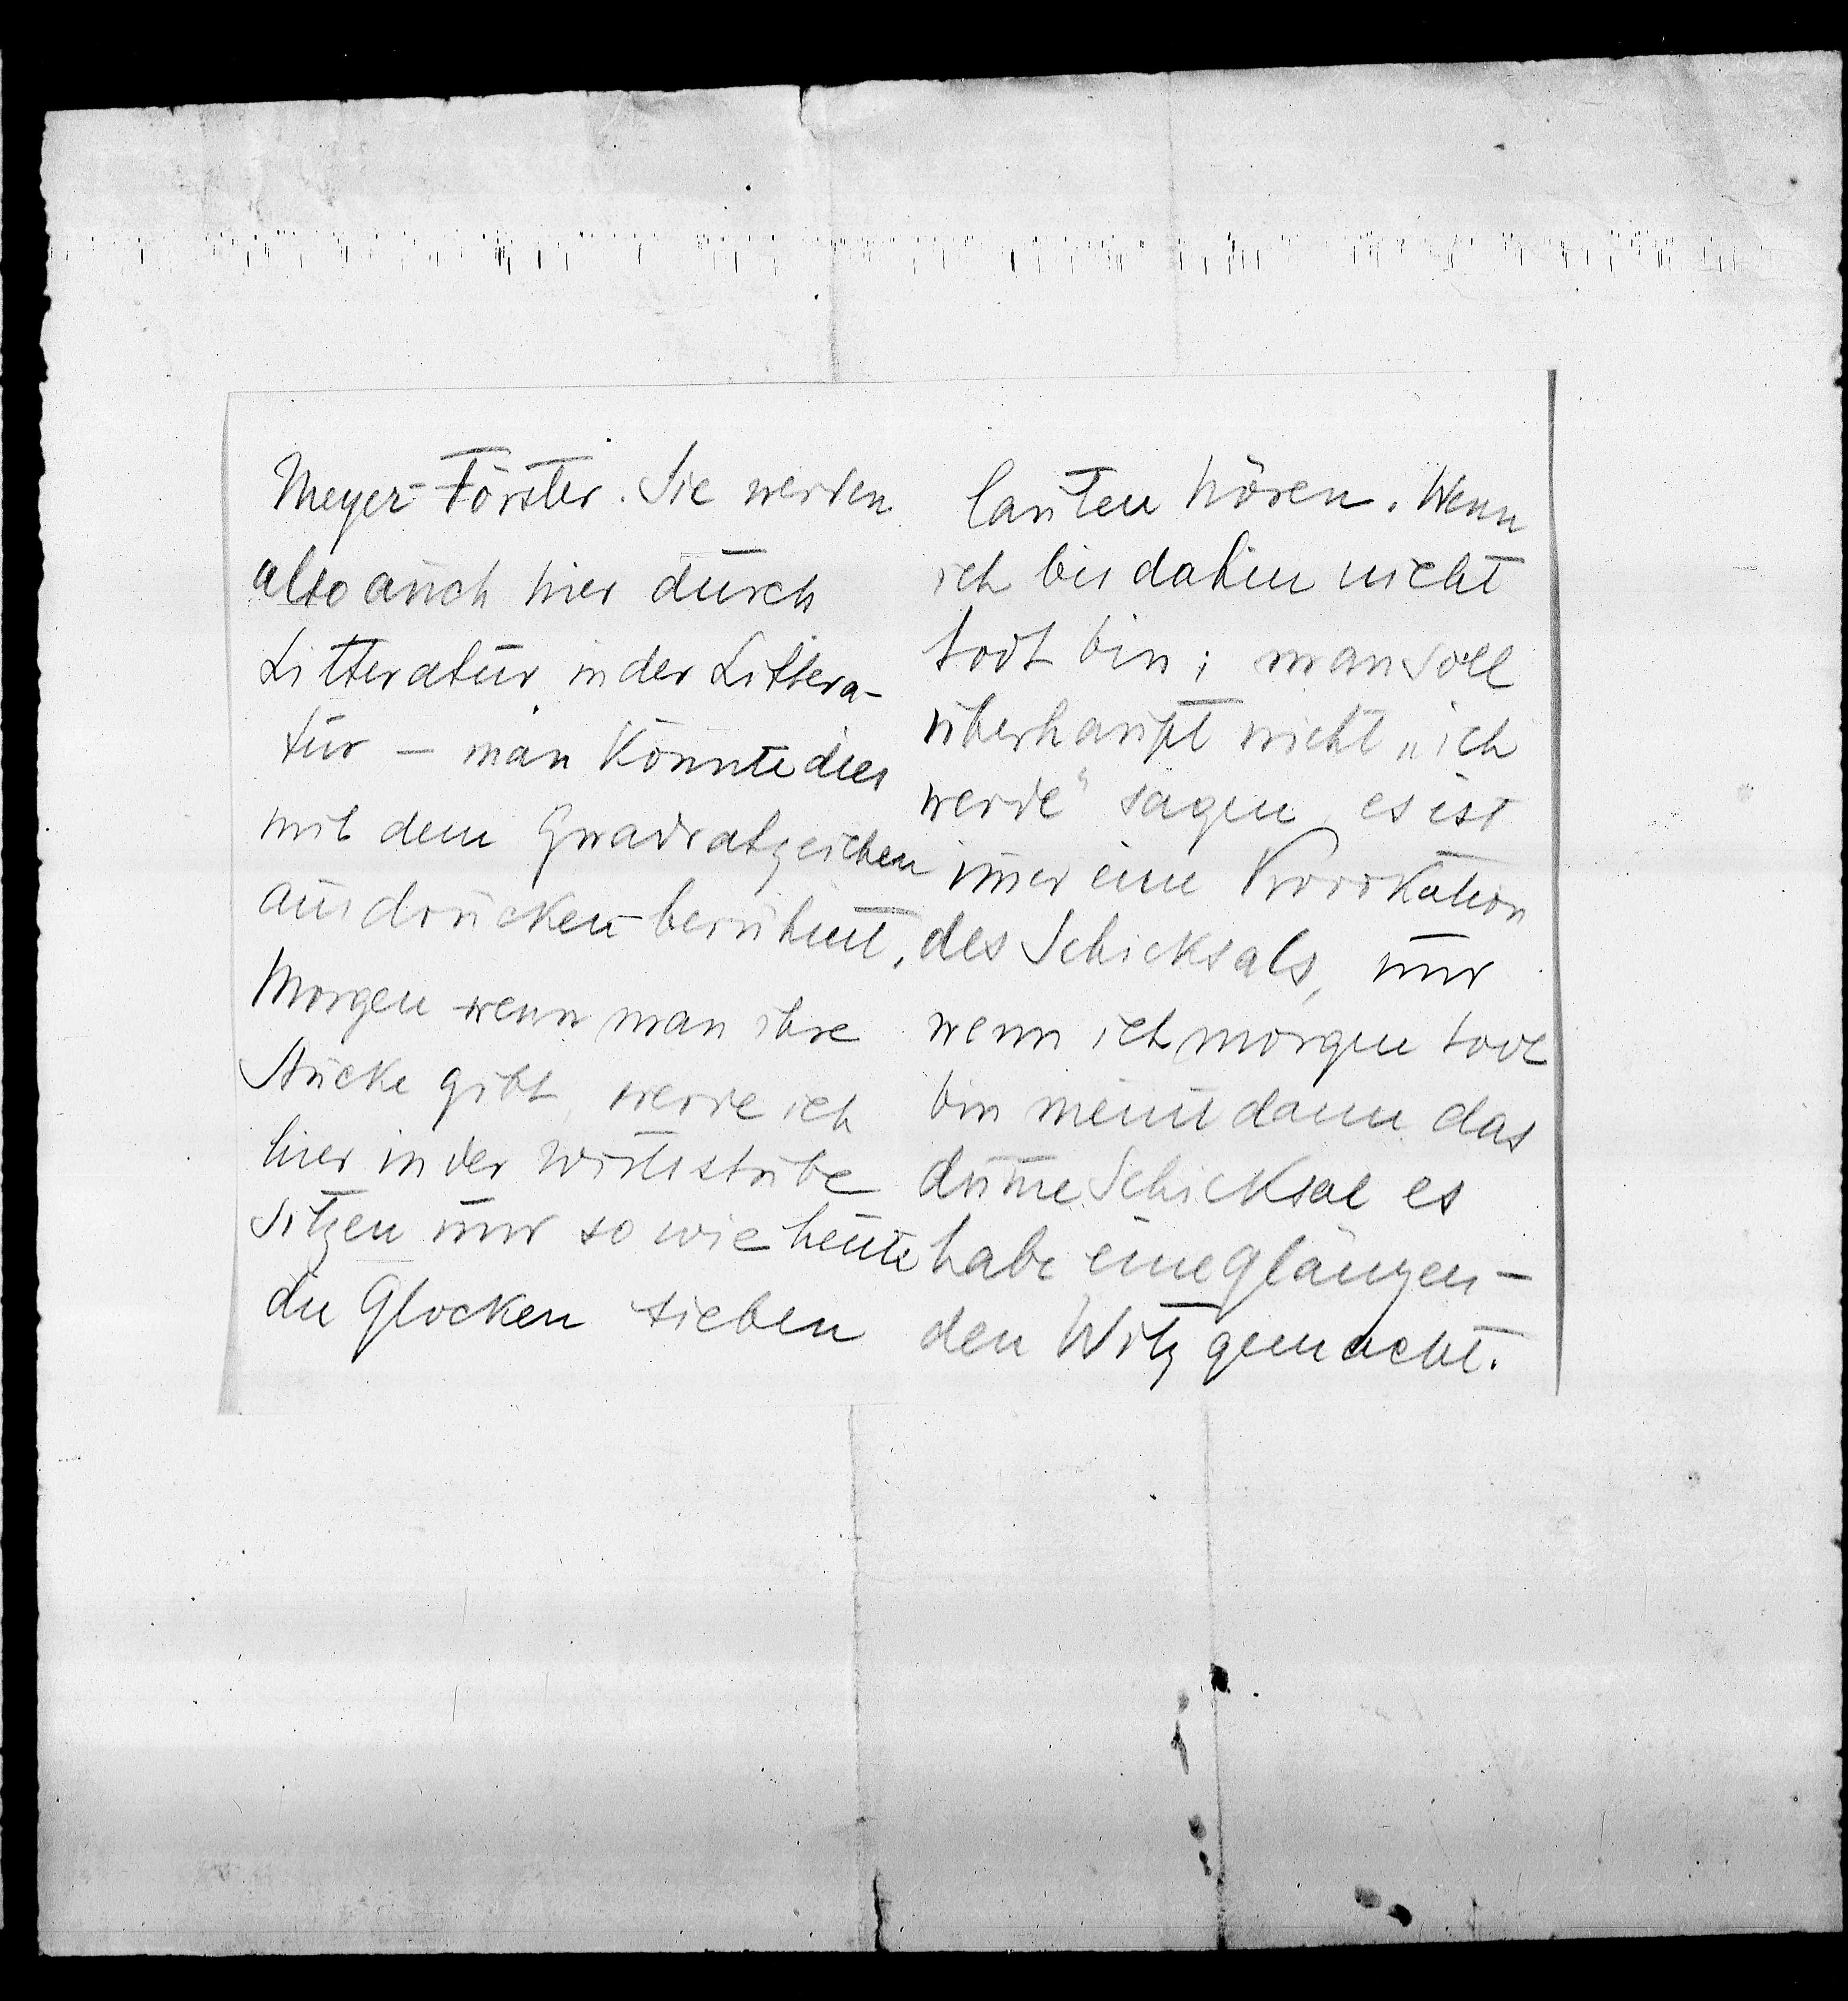 Meyer-Förster. Sie werden
also auch hier durch
Litteratur in der Littera-
tur – man könnte dies
mit dem Quadratzeichen
ausdrücken – berühmt.
Morgen wenn man ihre
Stücke gibt, werde ich
hier in der Wirtsstube
sitzen und so wie heute
die Glocken sieben
lauten hören. Wenn
ich bis dahin nicht
todt bin; man soll
überhaupt nicht „ich
werde“ sagen, es ist
im̄er eine Provokation
des Schicksals, und
wenn ich morgen todt
bin meint dann das
dum̄e Schicksal es
habe eine glänzen-
den Witz gemacht.